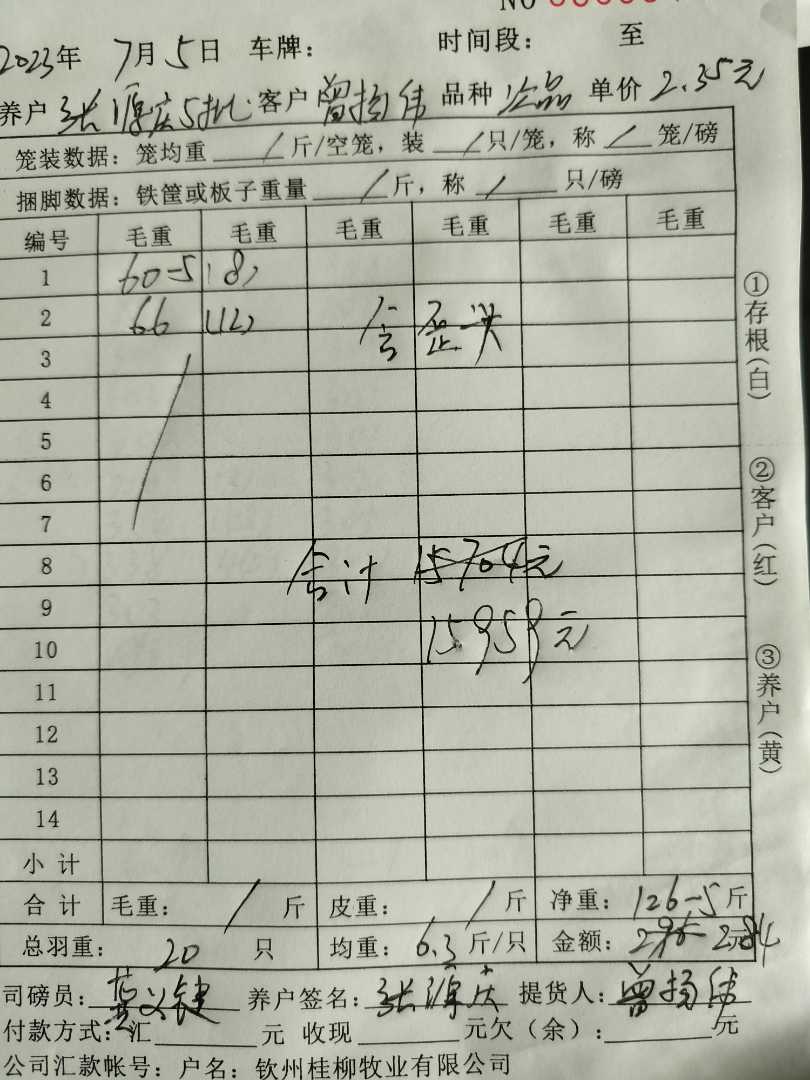 NO
2023年 7月5日 车牌： 时间段： 至
养户 张源庆5批 客户 曾扬伟 品种 次品 单价 2.35元
笼装数据：笼均重 / 斤/空笼，装 / 只/笼，称 / 笼/磅
捆脚数据：铁筐或板子重量 / 斤，称 / 只/磅
编号 毛重 毛重 毛重 毛重 毛重 毛重
1 60-5 (8)
2 66 (12) 含歪头
3
4
5
6
7
8 合计 15704元
9
10 15959元
11
12
13
14
小计
合计 毛重： / 斤 皮重： / 斤 净重：126-5斤
总羽重： 20 只 均重：6.3斤/只 金额：296 284元
司磅员： 养户签名：张源庆 提货人：曾扬伟
付款方式：汇 元 收现 元欠（余）： 元
公司汇款帐号：户名：钦州桂柳牧业有限公司
①存根（白）
②客户（红）
③养户（黄）